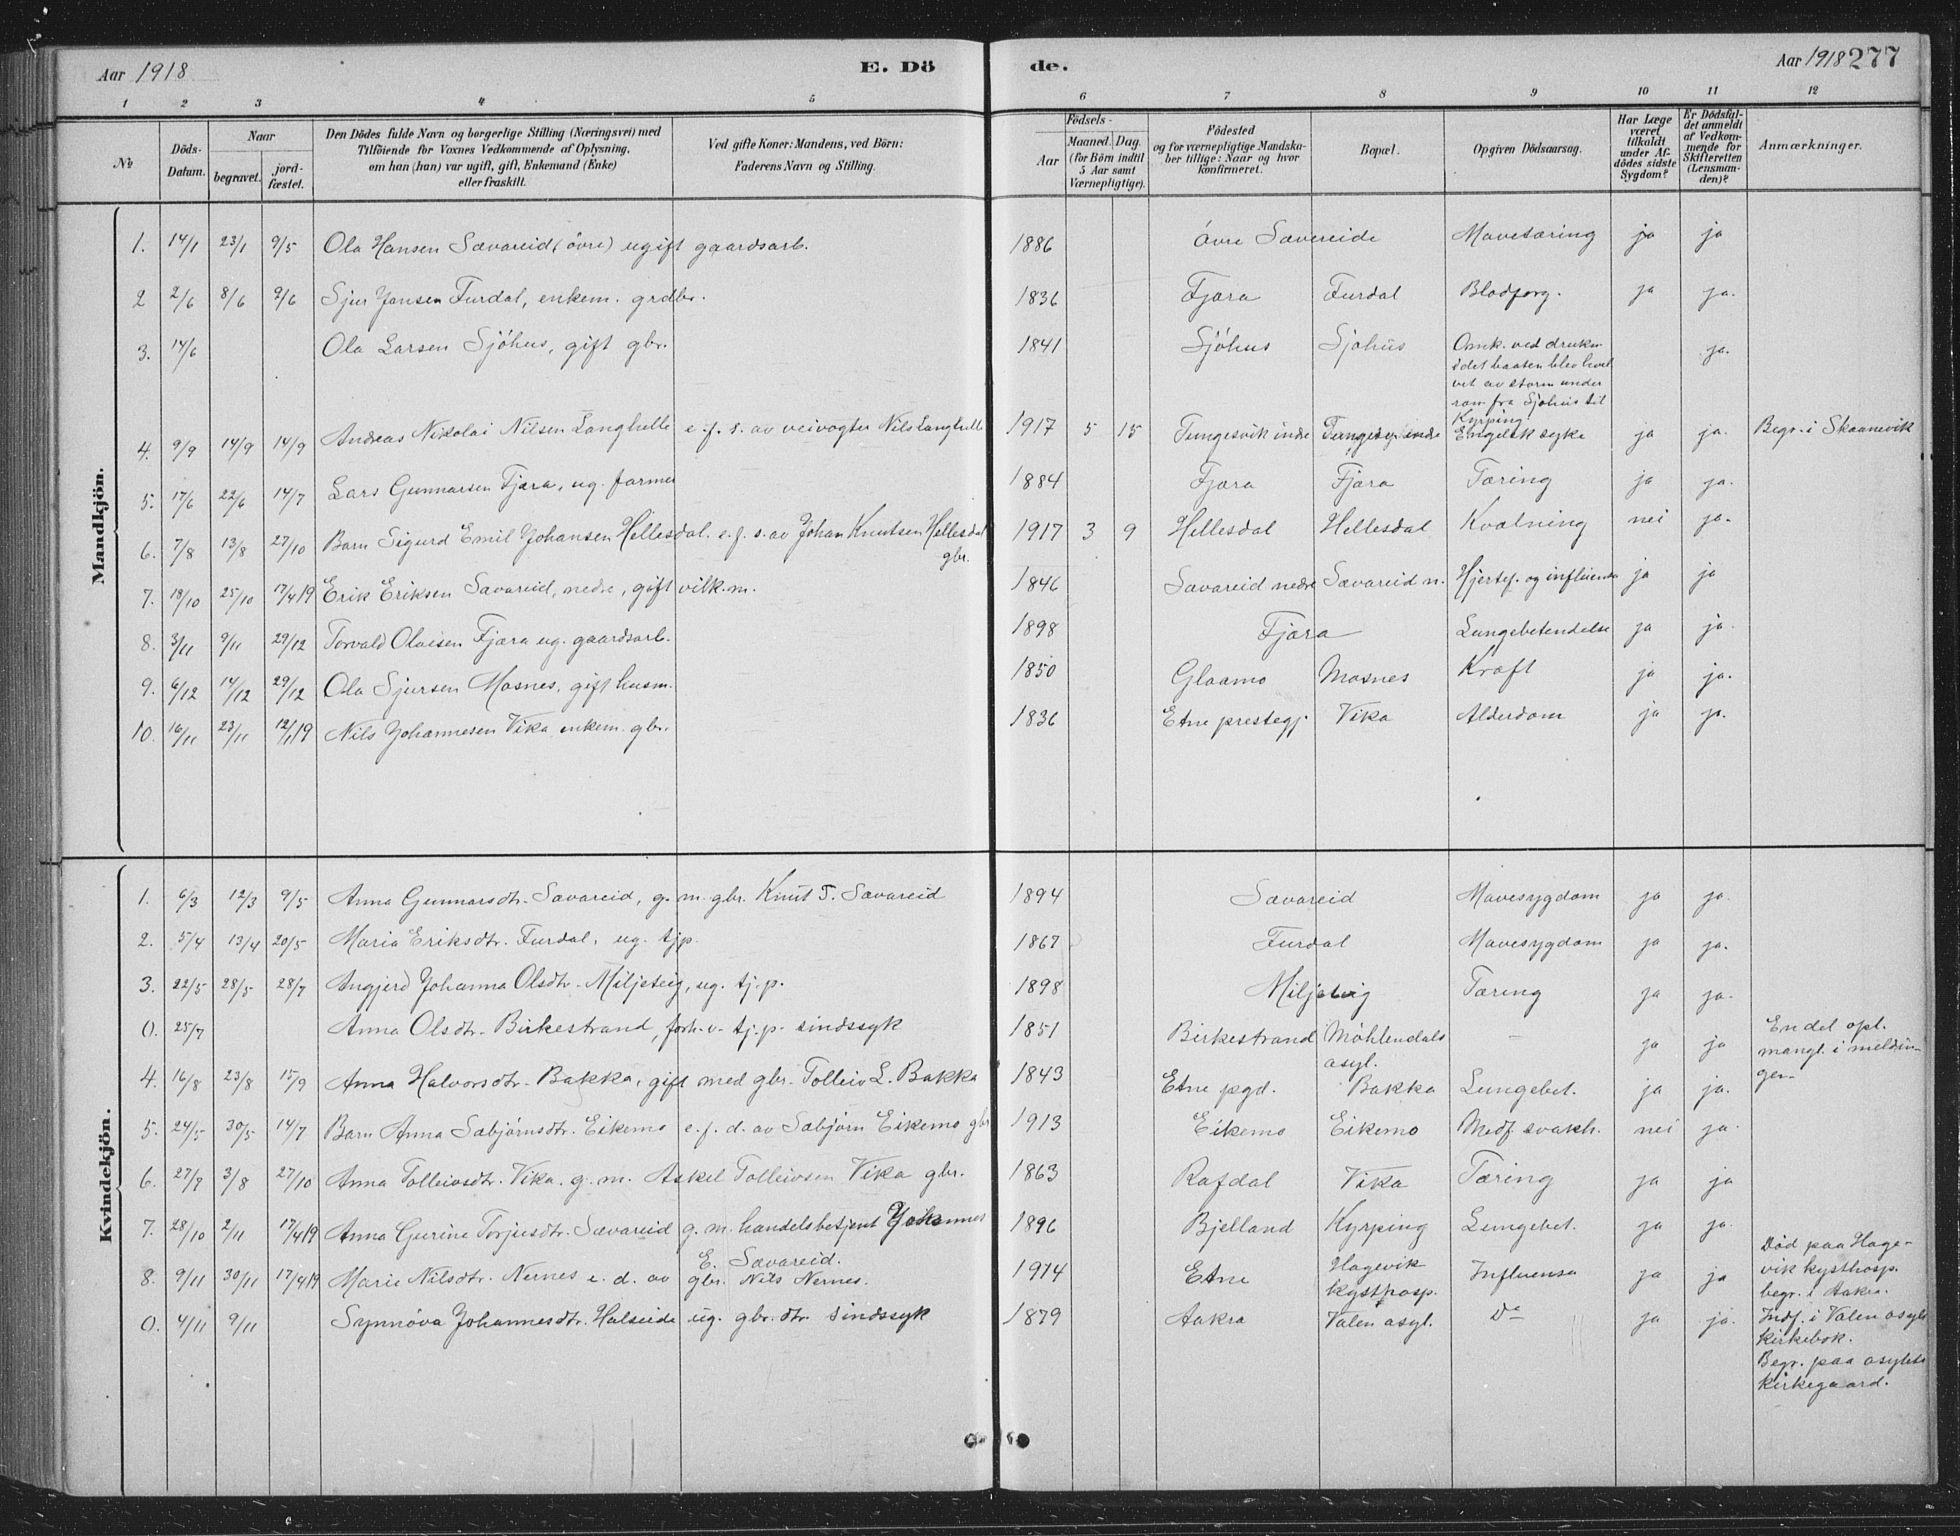 Aar 1918 E. Dö de. Aar 1918 277
1 2 3 4 5 6 7 8 9 10 11 12
No Döds-Datum. Naar begravet. jord-fæstet. Den Dödes fulde Navn og borgerlige Stilling (Næringsvei) med Tilföiende for Voxnes Vedkommende af Oplysning, om han (hun) var ugift, gift, Enkemand (Enke) eller fraskilt. Ved gifte Koner: Mandens, ved Börn: Faderens Navn og Stilling. Födsels- Aar Maaned. Dag. (for Börn indtil 5 Aar samt Værnepligtige). Födested og for værnepligtige Mandska-ber tillige: Naar og hvor konfirmeret. Bopæl. Opgiven Dödsaarsag. Har Læge været tilkaldt under Af-dödes sidste Sygdom? Er Dödsfal-det anmeldt af Vedkom-mende for Skifteretten (Lensman-den)? Anmærkninger.
Mandkjön.
1. 14/1 23/1 9/5 Ola Hansen Sævareid (övre) ugift gaardsarb. 1886 övre Sævereide Mavetæring ja ja
2 2/6 8/6 9/6 Sjur Jansen Furdal, enkem. grdbr. 1836 Fjæra Furdal Blodforg. ja ja.
3. 14/6 Ola Larsen Sjöhus, gift gbr. 1841 Sjöhus Sjöhus Omk. ved drukn. idet baaten blev hvel vet av storm under rom fra Sjöhus til Kyrping ja.
4. 9/9 14/9 14/9 Andreas Nikolai Nilsen Langhelle e. f. s. av veivogter Nils Langhelle 1917 5 15 Tungesvik indre Tungesv. indre Engelsk syke ja ja. Begr. i Skaanevik
5. 17/6 22/6 14/7 Lars Gunnarsen Fjæra, ug. farmer 1884 Fjæra Fjæra Tæring ja ja.
6. 7/8 13/8 27/10 Barn Sigurd Emil Johansen Hillesdal. e. f. s. av Johan Knutsen Hellesdal gbr. 1917 3 9 Hellesdal Hellesdal Kvælning nei ja.
7. 18/10 25/10 17/4 19 Erik Eriksen Sævareid, nedre, gift vilk.m. 1846 Sævareid nedre Sævareid n. Hjertef. og influensa ja ja
8. 3/11 9/11 29/12 Torvald Olaisen Fjæra ug. gaardsarb. 1898 Fjæra Lungebetendelse ja ja.
9. 6/12 14/12 29/12 Ola Sjursen Mosnes, gift husm. 1850 Glaamo Mosnes Kræft ja ja.
10. 16/11 23/11 12/1 19 Nils Johannesen Vika enkem. gbr. 1836 Etne prestegj. Vika Alderdom ja ja.
Kvindekjön.
1. 6/3 12/3 9/5 Anna Gunnarsdtr. Sævareid, g. m. gbr. Knut T. Sævareid 1894 Sævareid Mavesygdom ja ja.
2. 5/4 13/4 20/5 Maria Eriksdtr. Furdal, ug. tjp. 1867 Furdal Mavesygdom ja ja.
3. 22/5 28/5 28/7 Angjerd Johanna Olsdtr. Miljeteig, ug. tj. p. 1898 Miljeteig Tæring ja ja.
0. 25/7 Anna Olsdtr. Birkestrand, forh. v. tj. p. sindssyk 1851 Birkestrand Möhlendals asyl. - ja ja En del opl. mangl. i meldin-gen
4. 16/8 23/8 15/9 Anna Halvorsdtr. Bakka, gift med gbr. Tolleiv L. Bakka 1843 Etne pgd. Bakka Lungebet. ja ja.
5. 24/5 30/5 14/7 Barn Anna Sæbjörnsdtr. Eikemo e. f. d. av Sæbjörn Eikemo gbr 1913 Eikemo Eikemo Medf. svakh. nei ja.
6. 27/7 3/8 27/10 Anna Tolleivsdtr. Vika. g. m. Askel Tolleivsen Vika gbr. 1863 Rafdal Vika Tæring ja ja
7. 28/10 2/11 17/4 19 Anna Gurine Torjusdtr. Sævareid g. m. handelsbetjent Johannes E. Sævareid. 1896 Bjelland Kyrping Lungebet. ja ja.
8. 9/11 30/11 17/4 19 Marie Nilsdtr. Nernes e. d. av gbr. Nils Nernes. 1914 Etne Hagevik kysthosp. Influensa ja ja Död paa Hage-vik kysthosp. begr. i Aakra.
0. 4/11 9/11 Synnöva Johannesdtr. Halseide ug. gbr. dtr. sindssyk 1879 Aakra Valen asyl. Do ja ja. Indf. i Valen asyls kirkebok. Begr. paa asylets kirkegaard.